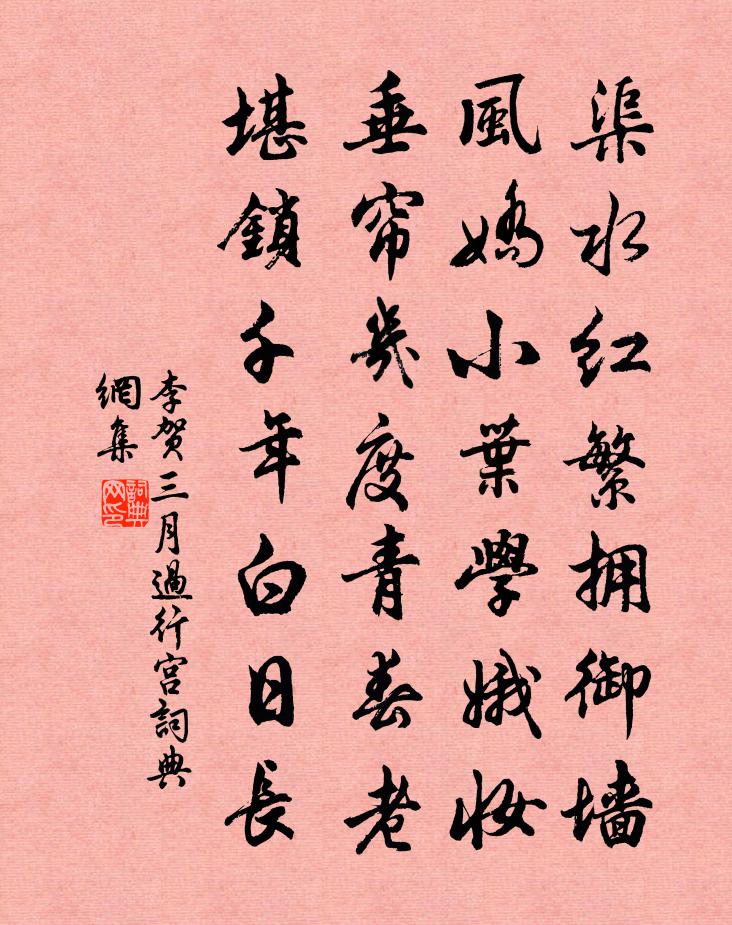 渠水红繁拥御墙
風嬌小葉學娥妆
垂帘幾度青春老
堪鎖千年白日長
李贺三月過行宫詞典
網集
詞典
网印